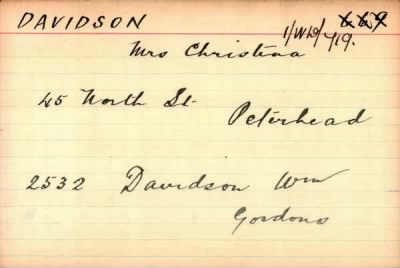 DAVIDSON 669
Mrs Christina 1/Wld/719.
45 North St
Peterhead
2532 Davidson Wm
Gordons